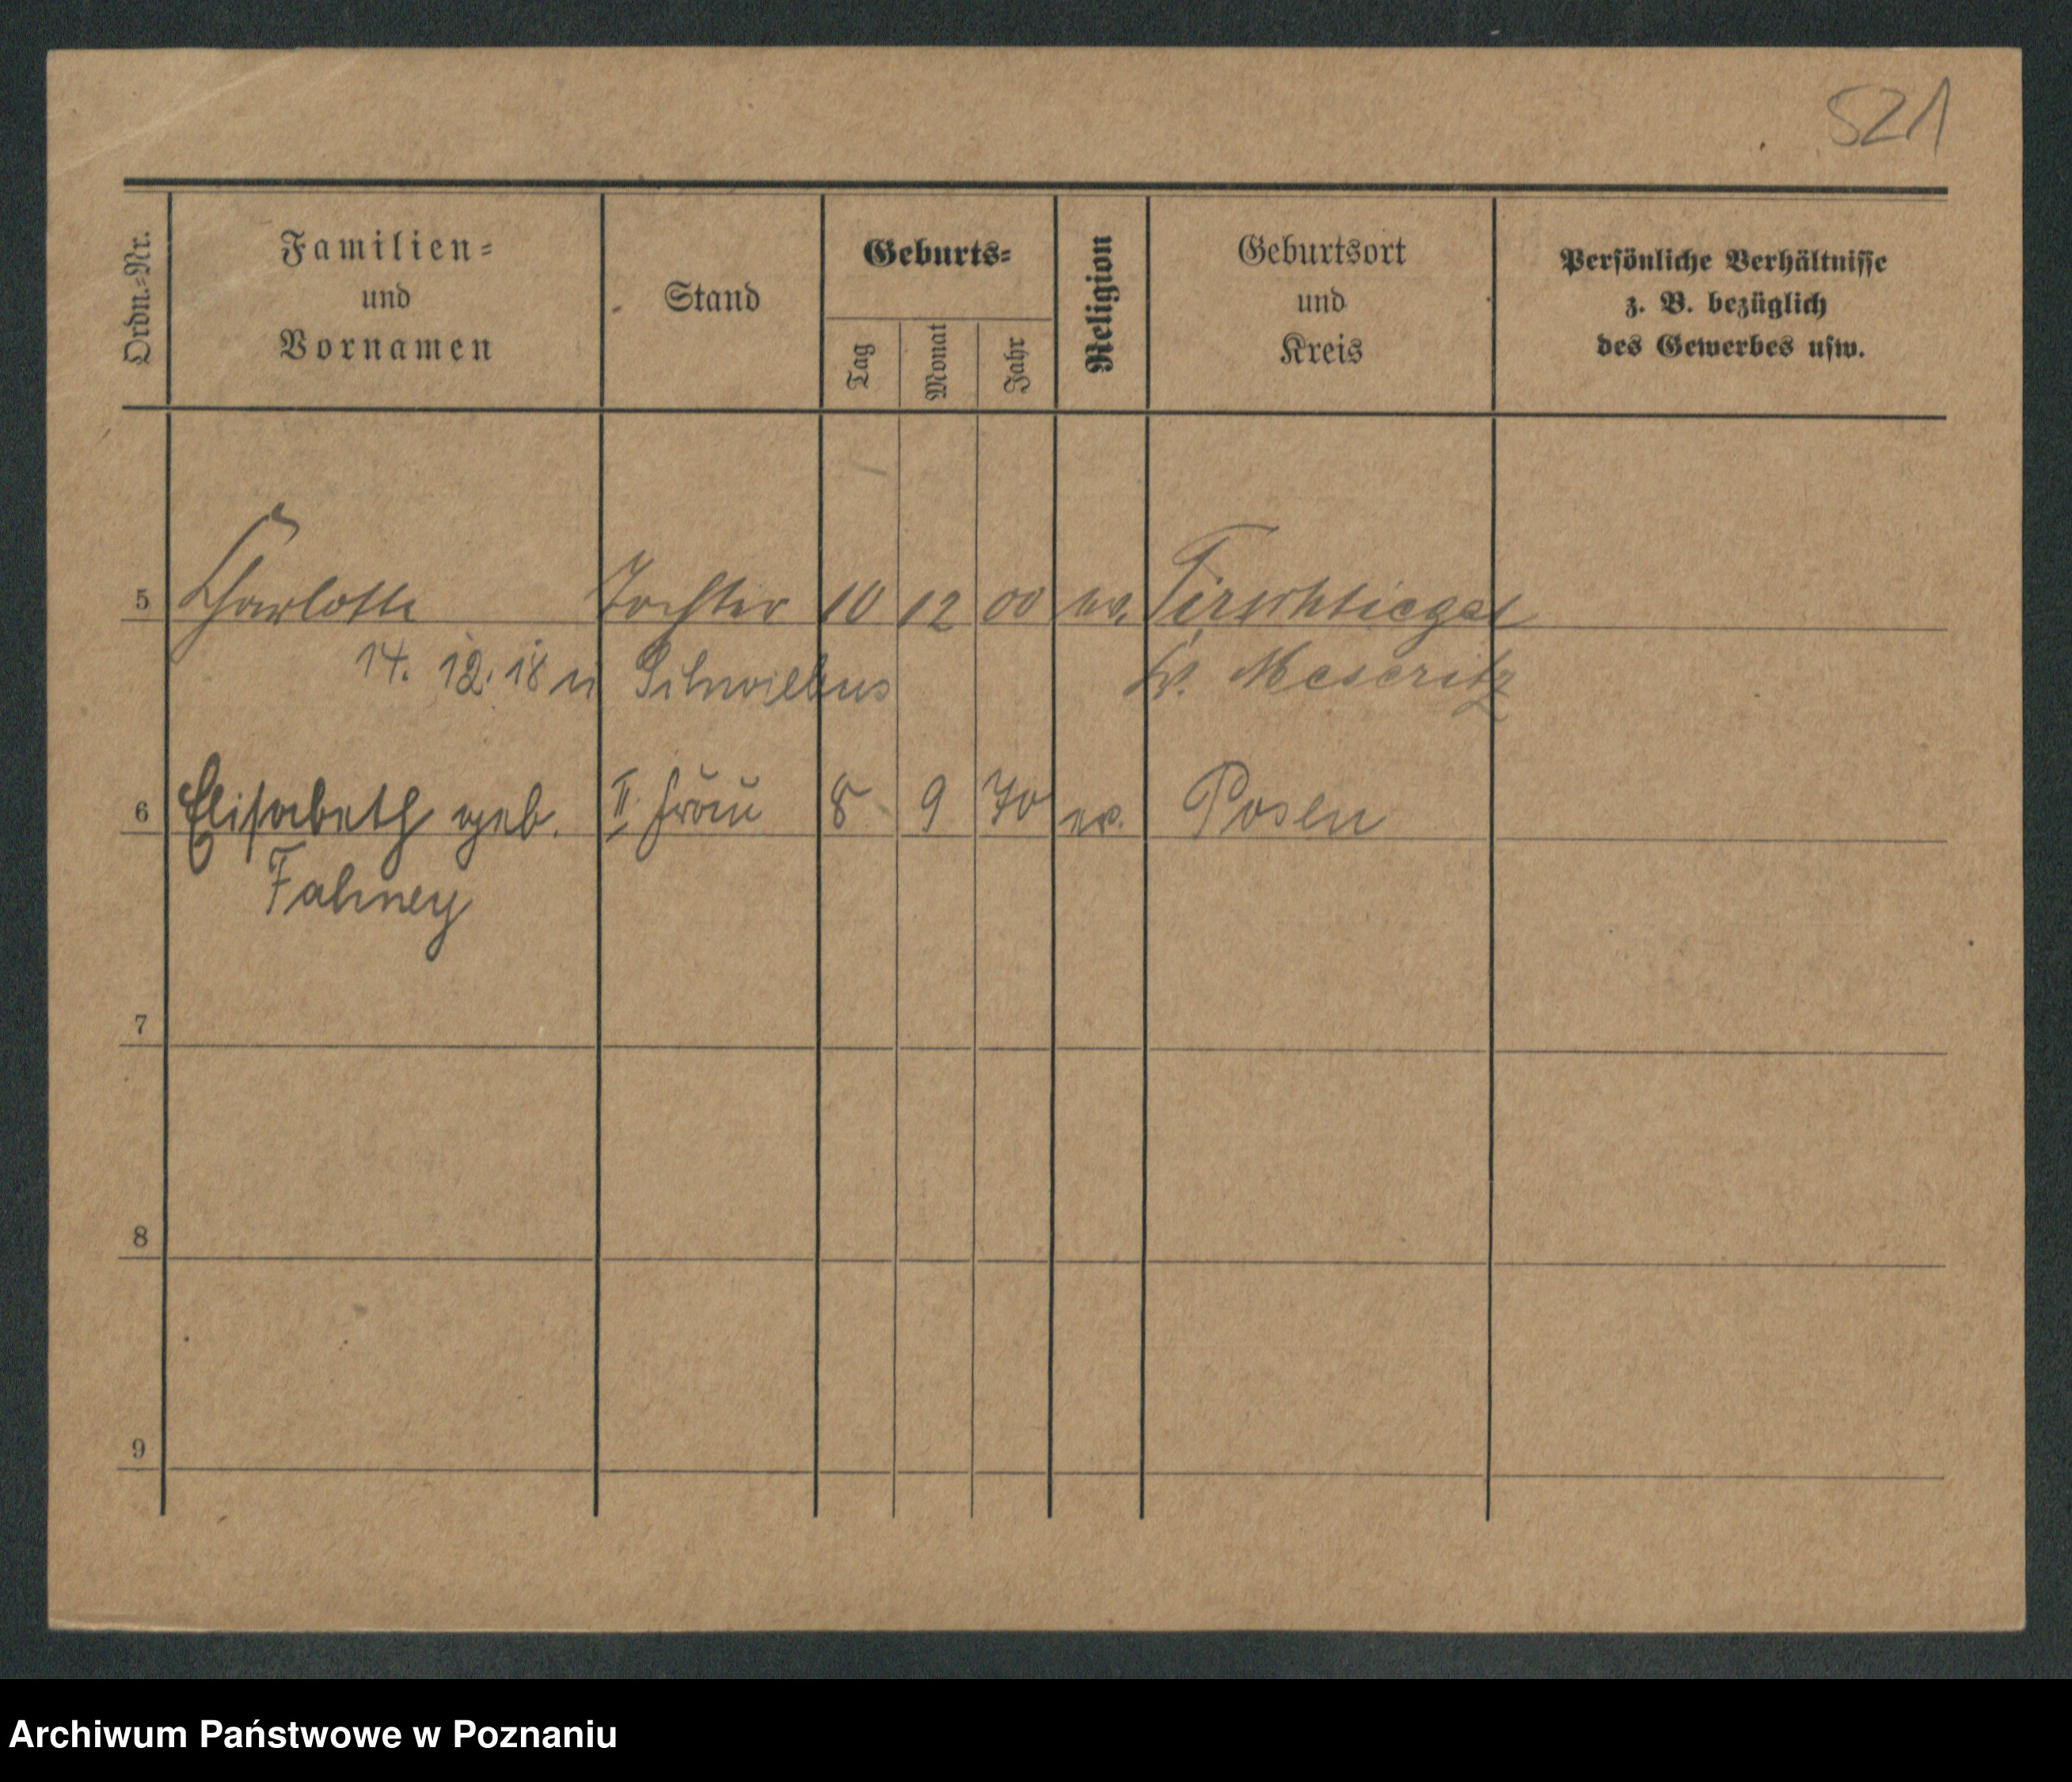 521
Ordn.-Nr.
Familien-
und
Vornamen
Stand
Geburts-
Tag
Monat
Jahr
Religion
Geburtsort
und
Kreis
Persönliche Verhältnisse
z. B. bezüglich
des Gewerbes usw.
5 Charlotte Tochter 10 12 00 ev. Tirschtiegel
14. 12. 18 n Schwiebus Kr. Meseritz
6 Elisabeth geb. II. Frau 8 9 70 ev. Posen
Fahney
7
8
9
Archiwum Państwowe w Poznaniu